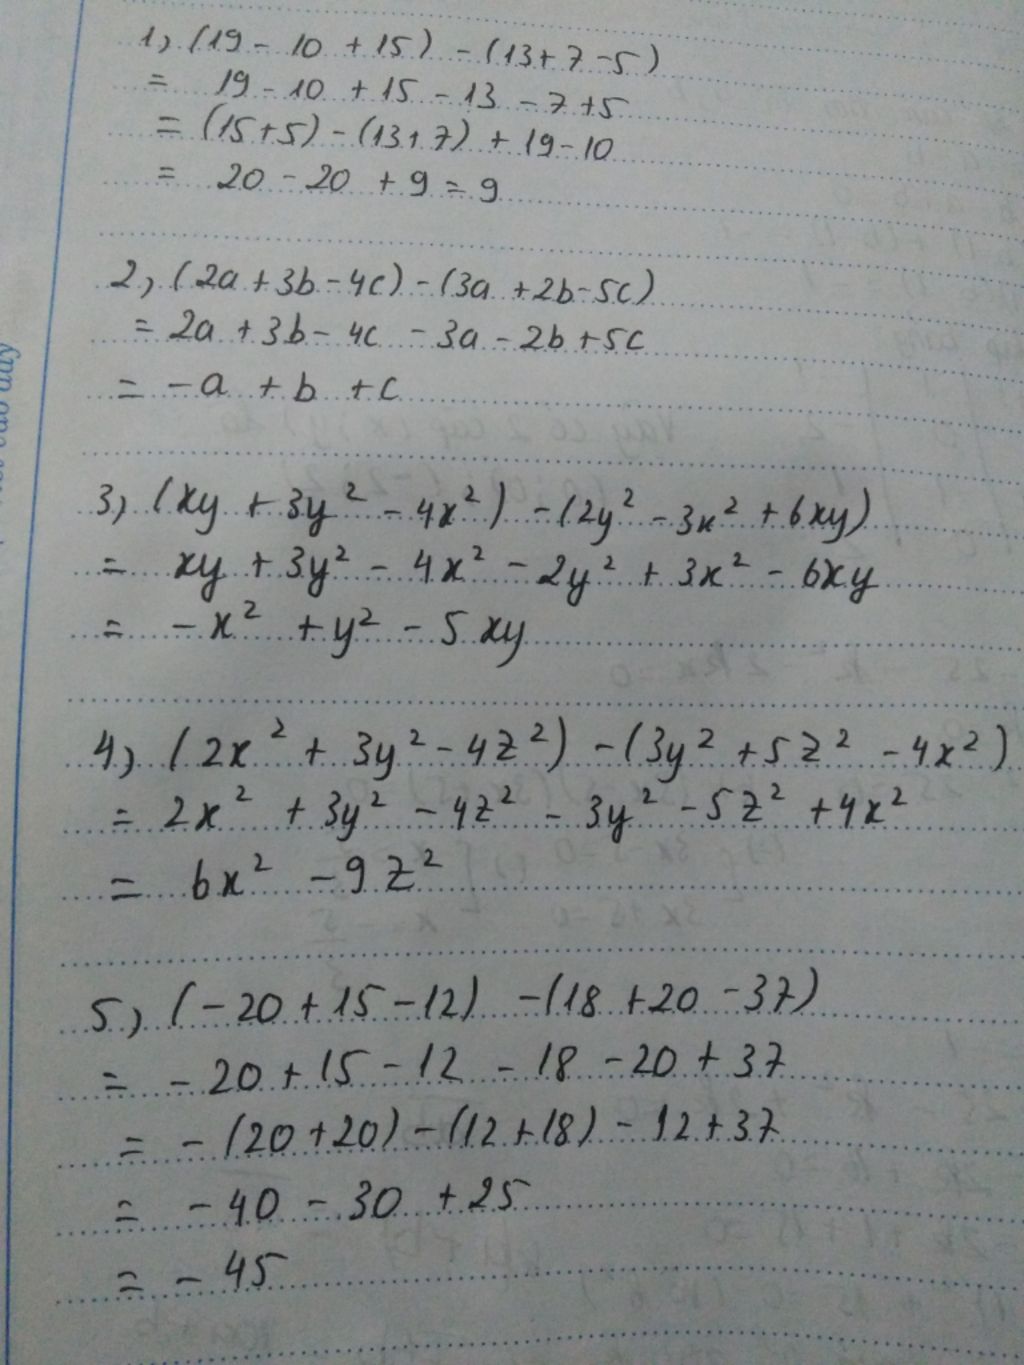 1, (19 - 10 + 15) - (13 + 7 - 5)
= 19 - 10 + 15 - 13 - 7 + 5
= (15 + 5) - (13 + 7) + 19 - 10
= 20 - 20 + 9 = 9
2, (2a + 3b - 4c) - (3a + 2b - 5c)
= 2a + 3b - 4c - 3a - 2b + 5c
= -a + b + c
3, (xy + 3y² - 4x²) - (2y² - 3x² + 6xy)
= xy + 3y² - 4x² - 2y² + 3x² - 6xy
= -x² + y² - 5xy
4, (2x² + 3y² - 4z²) - (3y² + 5z² - 4x²)
= 2x² + 3y² - 4z² - 3y² - 5z² + 4x²
= 6x² - 9z²
5, (-20 + 15 - 12) - (18 + 20 - 37)
= -20 + 15 - 12 - 18 - 20 + 37
= -(20 + 20) - (12 + 18) - 12 + 37
= -40 - 30 + 25
= -45